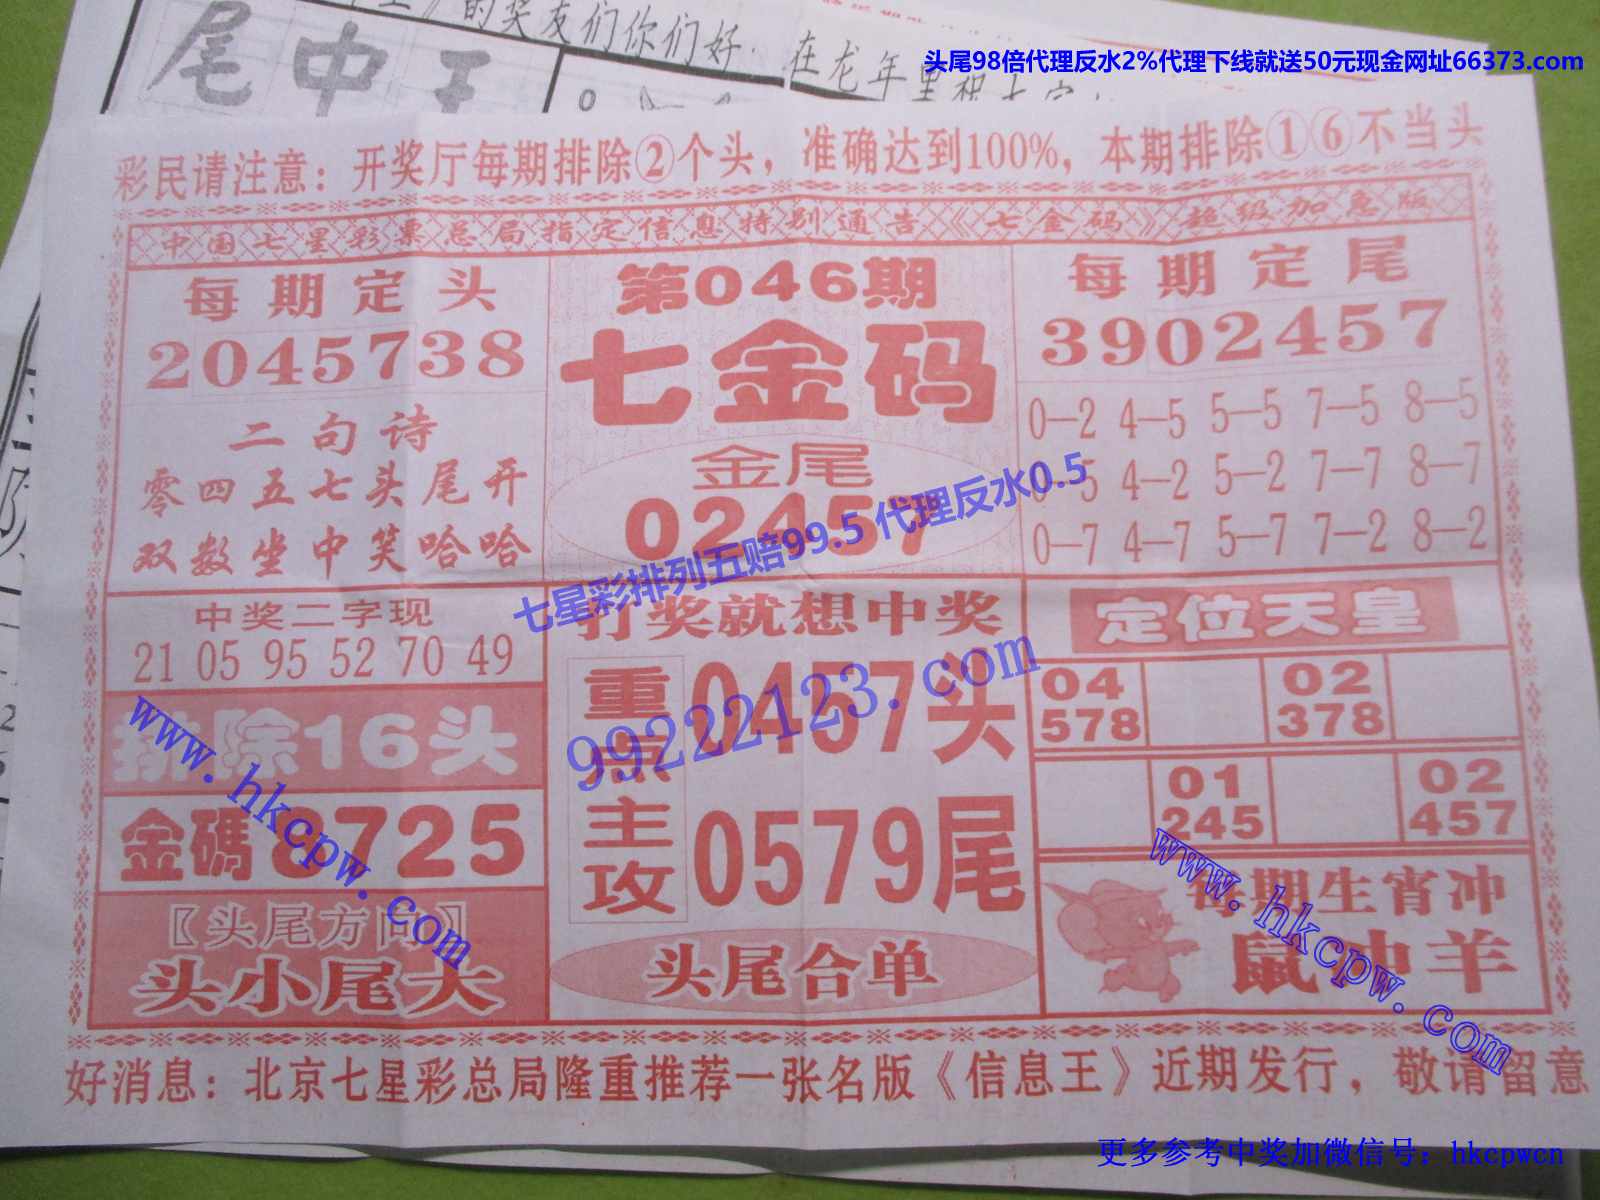 的奖友们你们好.
在龙年里祝
尾中王
头尾98倍代理反水2%代理下线就送50元现金网址66373.com
彩民请注意：开奖厅每期排除②个头，准确达到100%，本期排除①⑥不当头
中国七星彩票总局指定信息特别通告《七金码》超级加急版
每期定头
2045738
二句诗
零四五七头尾开
双数坐中笑哈哈
第046期
七金码
金尾
02457
每期定尾
3902457
0—2 4—5 5—5 7—5 8—5
0—5 4—2 5—2 7—7 8—7
0—7 4—7 5—7 7—2 8—2
七星彩排列五赔99.5 代理反水0.5
中奖二字现
21 05 95 52 70 49
排除16头
金碼8725
〖头尾方向〗
头小尾大
打奖就想中奖
重点主攻
0457头
0579尾
头尾合单
99222123.com
定位天皇
04 578
02 378
01 245
02 457
每期生肖冲
鼠冲羊
www.hkcpw.com
www.hkcpw.com
好消息：北京七星彩总局隆重推荐一张名版《信息王》近期发行，敬请留意
更多参考中奖加微信号：hkcpwcn